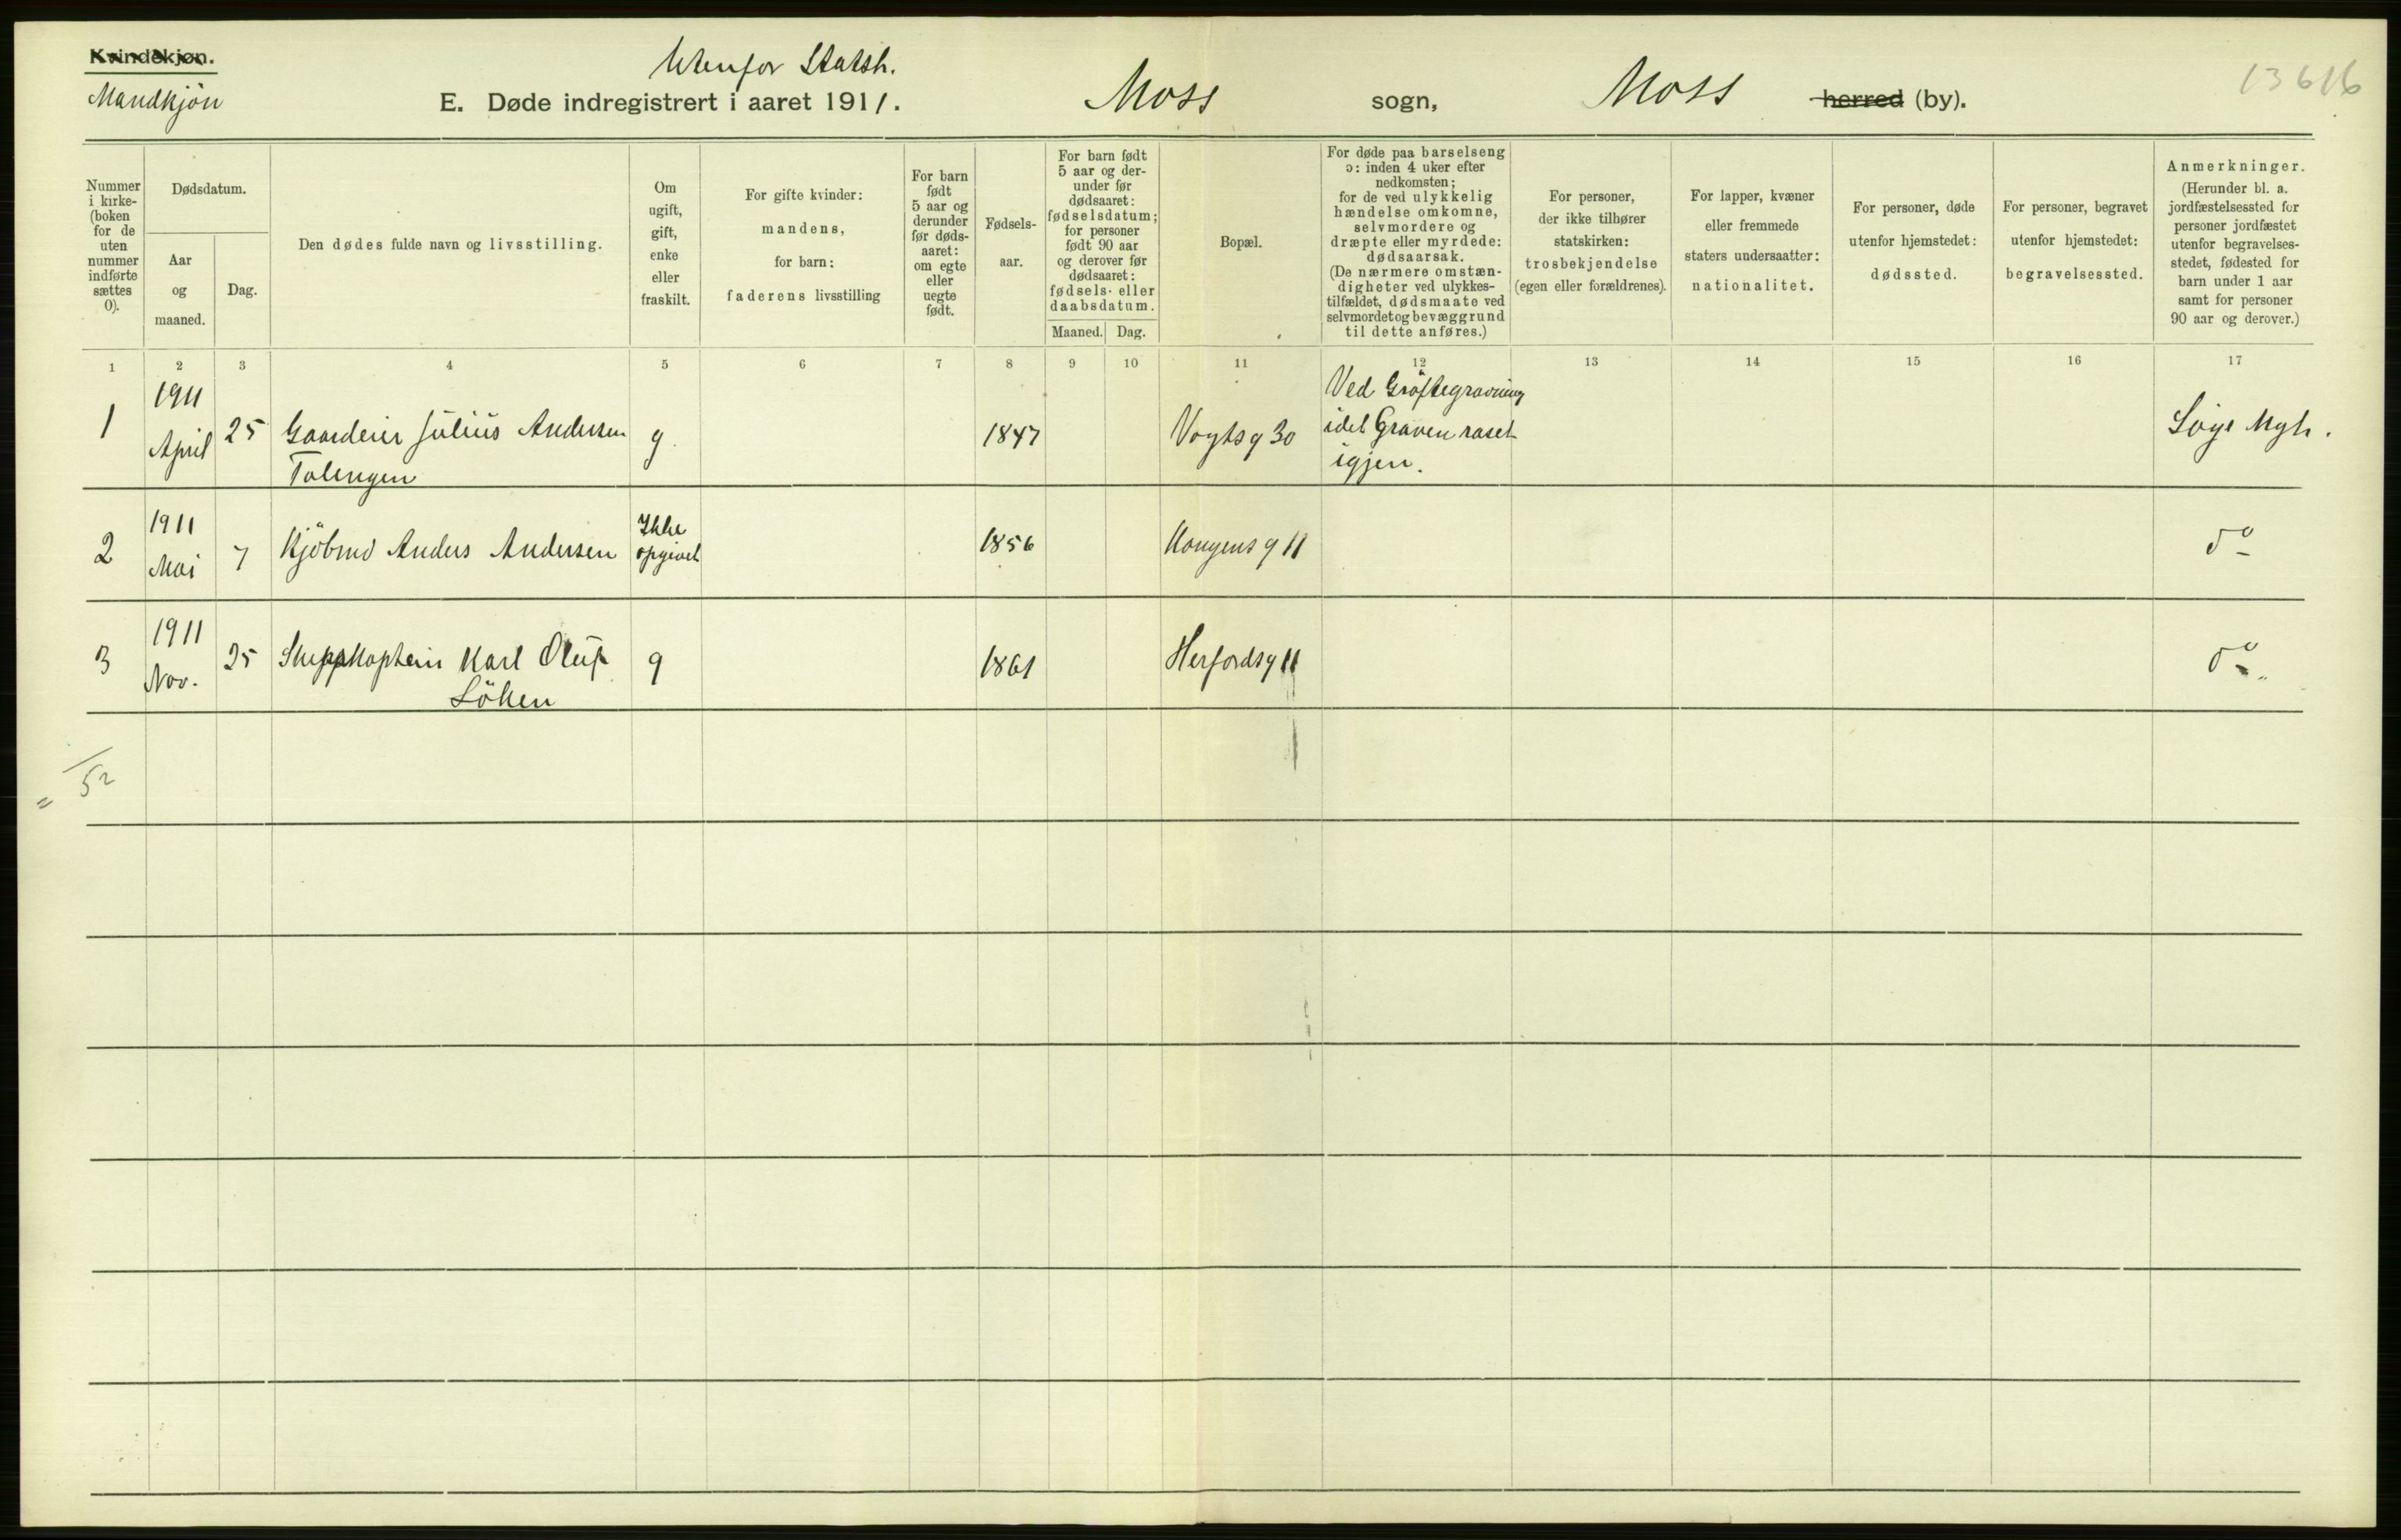 Kvindekjøn.
Mandkjön
Utenfor Statsk.
E. Døde indregistrert i aaret 1911.
Moss sogn,
Moss herred (by).
13616
Nummer
i kirke-
(boken
for de
uten
nummer
indførte
sættes
0).
Dødsdatum.
Aar
og
maaned.
Dag.
Den dødes fulde navn og livsstilling.
Om
ugift,
gift,
enke
eller
fraskilt.
For gifte kvinder:
mandens,
for barn:
faderens livsstilling
For barn
født
5 aar og
derunder
før døds-
aaret:
om egte
eller
uegte
født.
Fødsels-
aar.
For barn født
5 aar og der-
under før
dødsaaret:
fødselsdatum;
for personer
født 90 aar
og derover før
dødsaaret:
fødsels- eller
daabsdatum.
Maaned. Dag.
Bopæl.
For døde paa barselseng
ɔ: inden 4 uker efter
nedkomsten;
for de ved ulykkelig
hændelse omkomne,
selvmordere og
dræpte eller myrdede:
dødsaarsak.
(De nærmere omstæn-
digheter ved ulykkes-
tilfældet, dødsmaate ved
selvmordet og bevæggrund
til dette anføres.)
For personer,
der ikke tilhører
statskirken:
trosbekjendelse
(egen eller forældrenes).
For lapper, kvæner
eller fremmede
staters undersaatter:
nationalitet.
For personer, døde
utenfor hjemstedet:
dødssted.
For personer, begravet
utenfor hjemstedet:
begravelsessted.
Anmerkninger.
(Herunder bl. a.
jordfæstelsessted for
personer jordfæstet
utenfor begravelses-
stedet, fødested for
barn under 1 aar
samt for personer
90 aar og derover.)
1 2 3 4 5 6 7 8 9 10 11 12 13 14 15 16 17
1
1911
April
25
Gaardeier Julius Andersen
g.
1847
Vogtsg 30
Ved Gröftegravning
idet Graven raset
igjen.
2
1911
Mai
7
Kjöbmd Anders Andersen
Ikke
opgivet
1856
Kongensg 11
do
3
1911
Nov.
25
Skippskaptein Karl Oluf
Löken
g
1861
Herfordsg 11
do
= 52